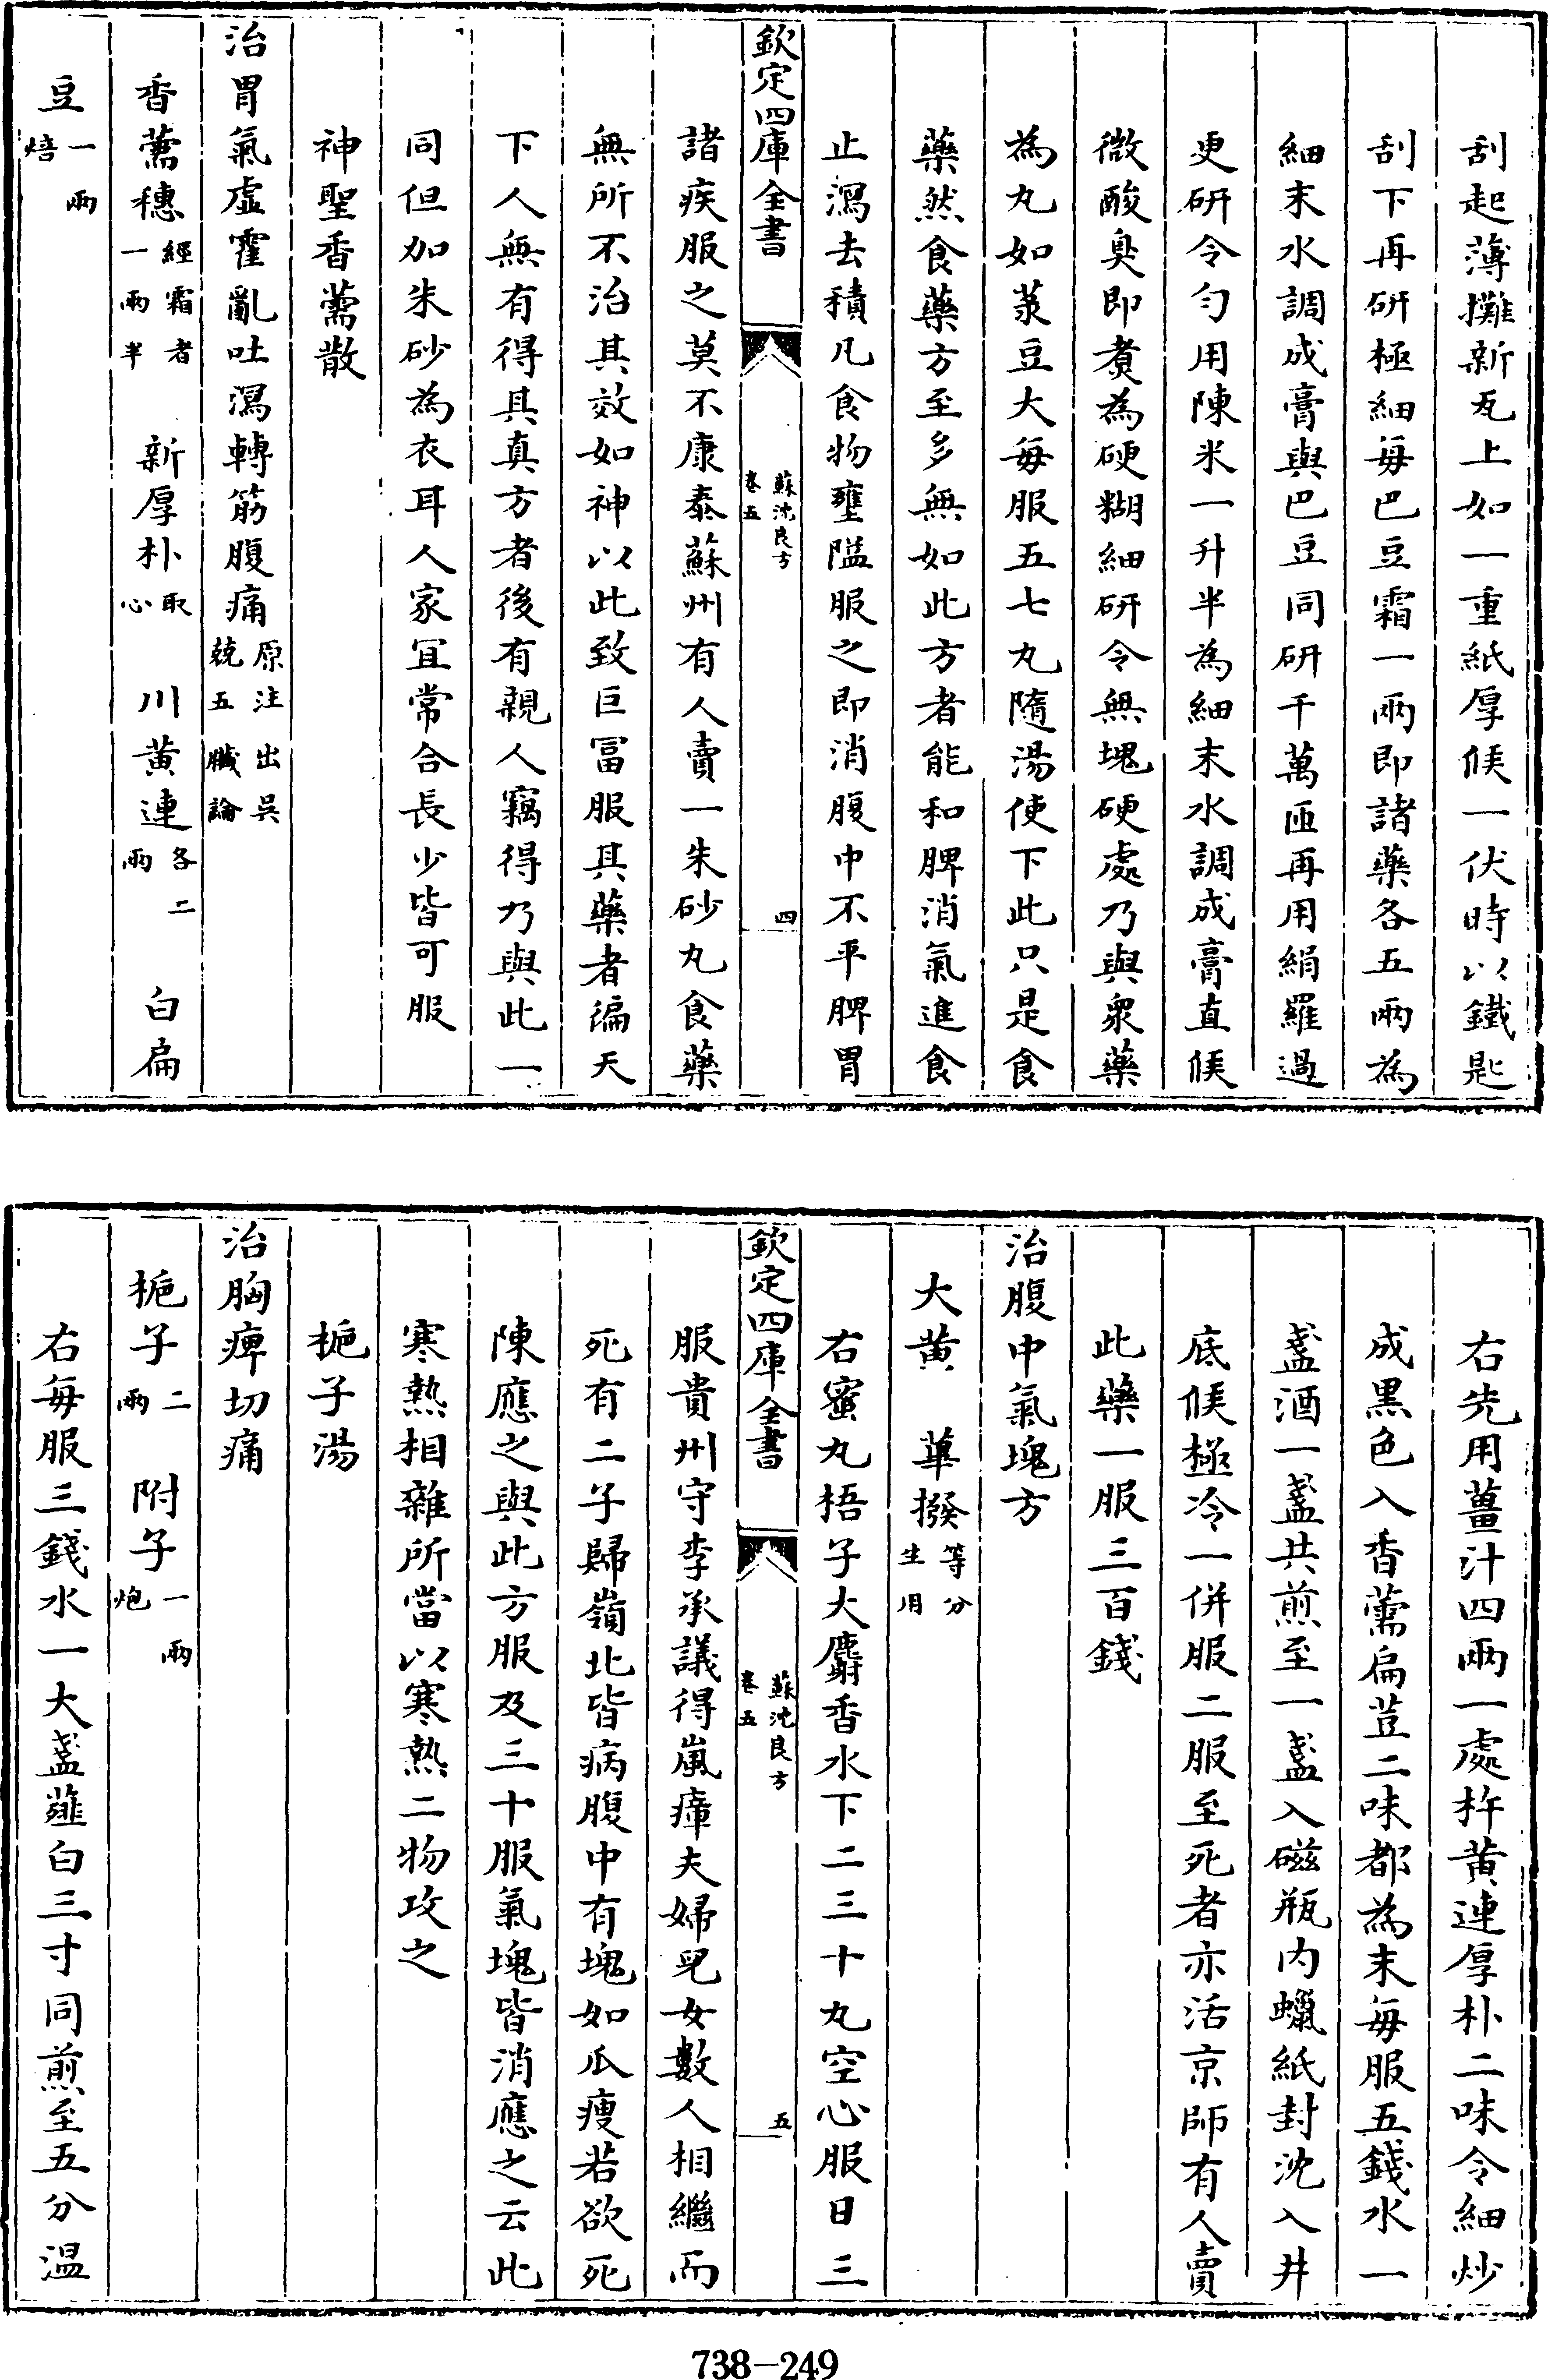 刮起薄攤新瓦上如一重紙厚候一伏時以鐵匙
刮下再研極細每巴豆霜一兩即諸藥各五兩為
細末水調成膏與巴豆同研千萬匝再用絹羅過
更研令勻用陳米一升半為細末水調成膏直候
微酸臭即煑為硬糊細研令無塊硬處乃與衆藥
為丸如菉豆大每服五七丸隨湯使下此只是食
藥然食藥方至多無如此方者能和脾消氣進食
止瀉去積凡食物壅隘服之即消腹中不平脾胃
欽定四庫全書
蘇沈良方
卷五
四
諸疾服之莫不康泰蘇州有人賣一朱砂丸食藥
無所不治其效如神以此致巨富服其藥者徧天
下人無有得其真方者後有親人竊得乃與此一
同但加朱砂為衣耳人家宜常合長少皆可服
神聖香薷散
治胃氣虛霍亂吐瀉轉筋腹痛原注出吳兢五臟論
香薷穗經霜者一兩半 新厚朴取心 川黄連各二兩 白扁
豆一兩焙
右先用薑汁四兩一處杵黄連厚朴二味令細炒
成黑色入香薷扁荳二味都為末每服五錢水一
盞酒一盞共煎至一盞入磁瓶内蠟紙封沈入井
底候極冷一併服二服至死者亦活京師有人賣
此藥一服三百錢
治腹中氣塊方
大黄 蓽撥等分生用
右蜜丸梧子大麝香水下二三十丸空心服日三
欽定四庫全書
蘇沈良方
卷五
五
服貴州守李承議得嵐瘴夫婦兒女數人相繼而
死有二子歸嶺北皆病腹中有塊如瓜瘦若欲死
陳應之與此方服及三十服氣塊皆消應之云此
寒熱相雜所當以寒熱二物攻之
梔子湯
治胸痺切痛
梔子二兩 附子一兩炮
右每服三錢水一大盞薤白三寸同煎至五分温
738-249